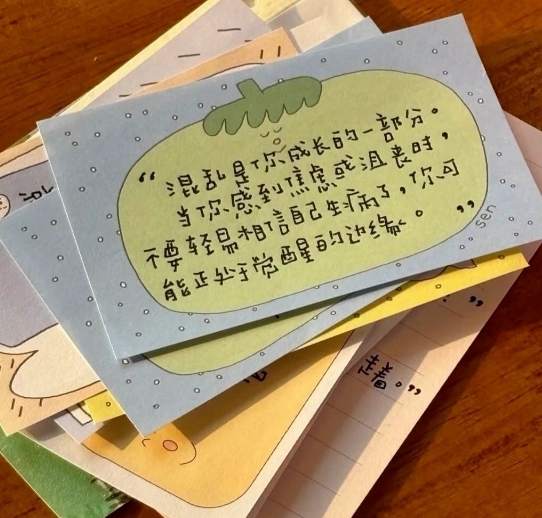 “混乱是你成长的一部分。
当你感到焦虑或沮丧时，
不要轻易相信自己生病了，你可
能正处于觉醒的边缘。”
sen
”
着。”